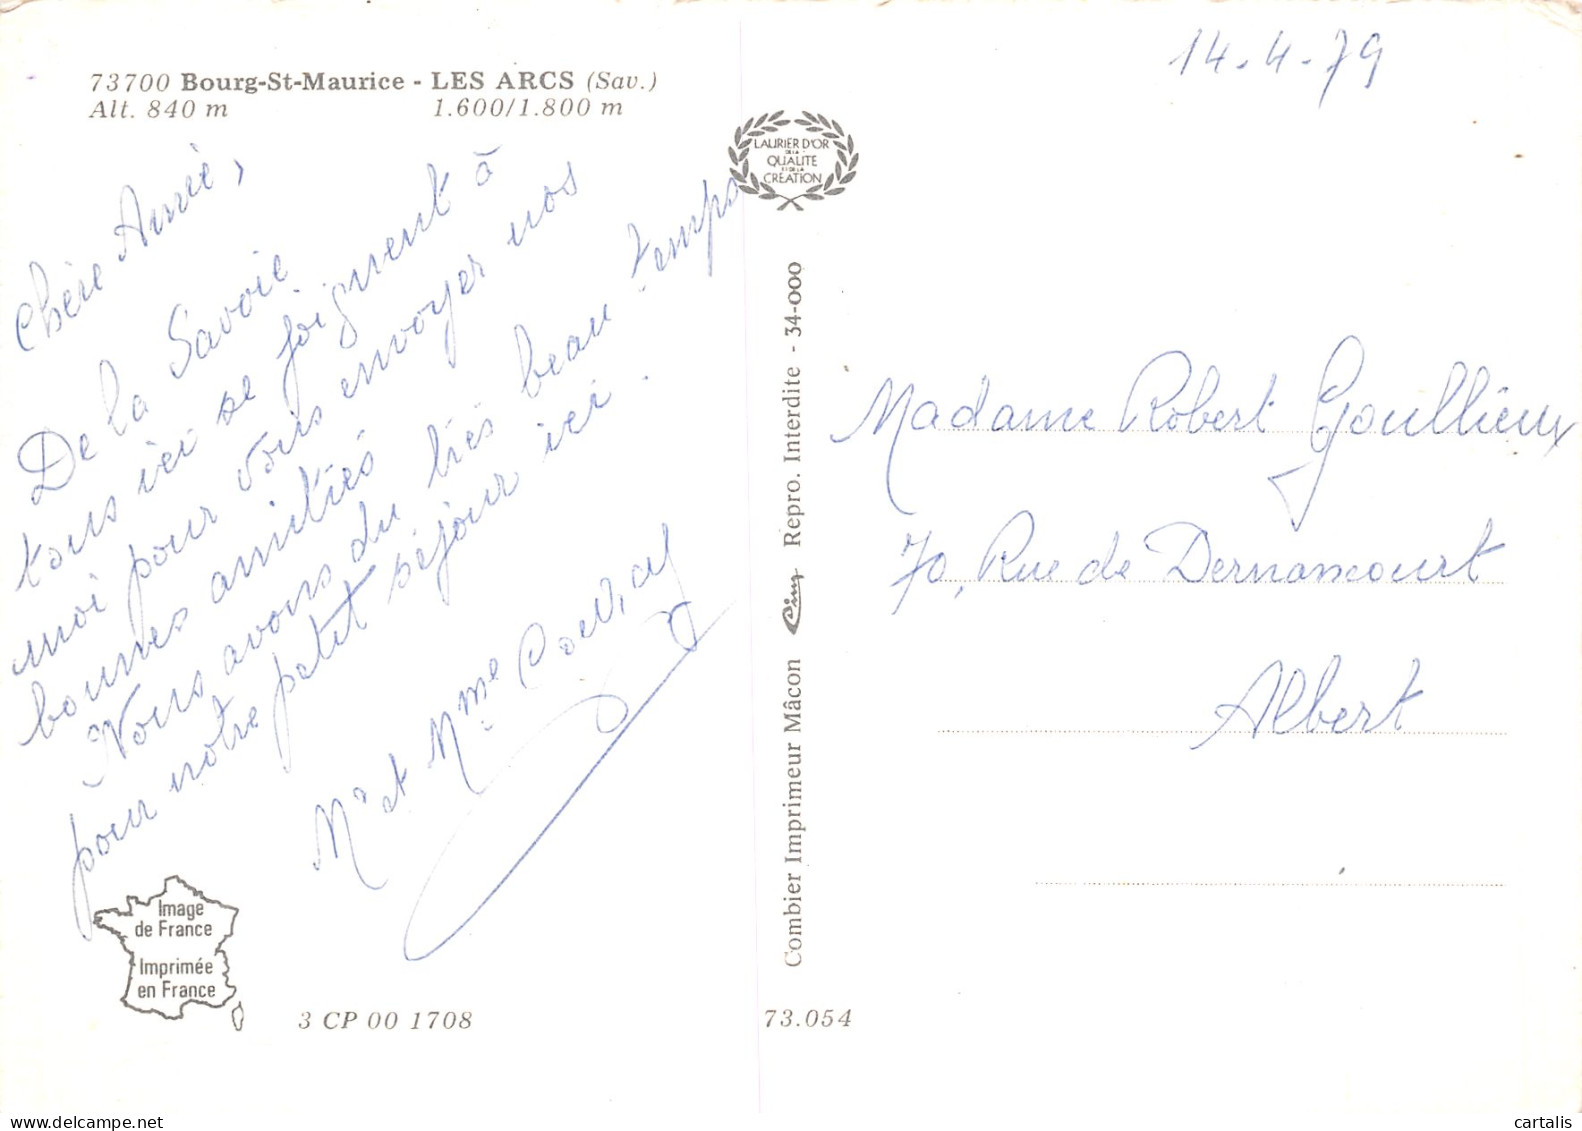 73700 Bourg-St-Maurice - LES ARCS (Sav.)
Alt. 840 m 1.600/1.800 m
Chère Amie,
De la Savoie
tous ici se joignent à
moi pour vous envoyer nos
bonnes amitiés
Nous avons du très beau temps
pour notre petit séjour ici.
Mr et Mme
Image
de France
Imprimée
en France
3 CP 00 1708
LAURIER D'OR
DE LA
QUALITE
ET DE LA
CRÉATION
Combier Imprimeur Mâcon Cim Repro. Interdite - 34-000
73.054
14.4.79
Madame Robert Goullieux
70, Rue de Dernancourt
Albert
cartalis